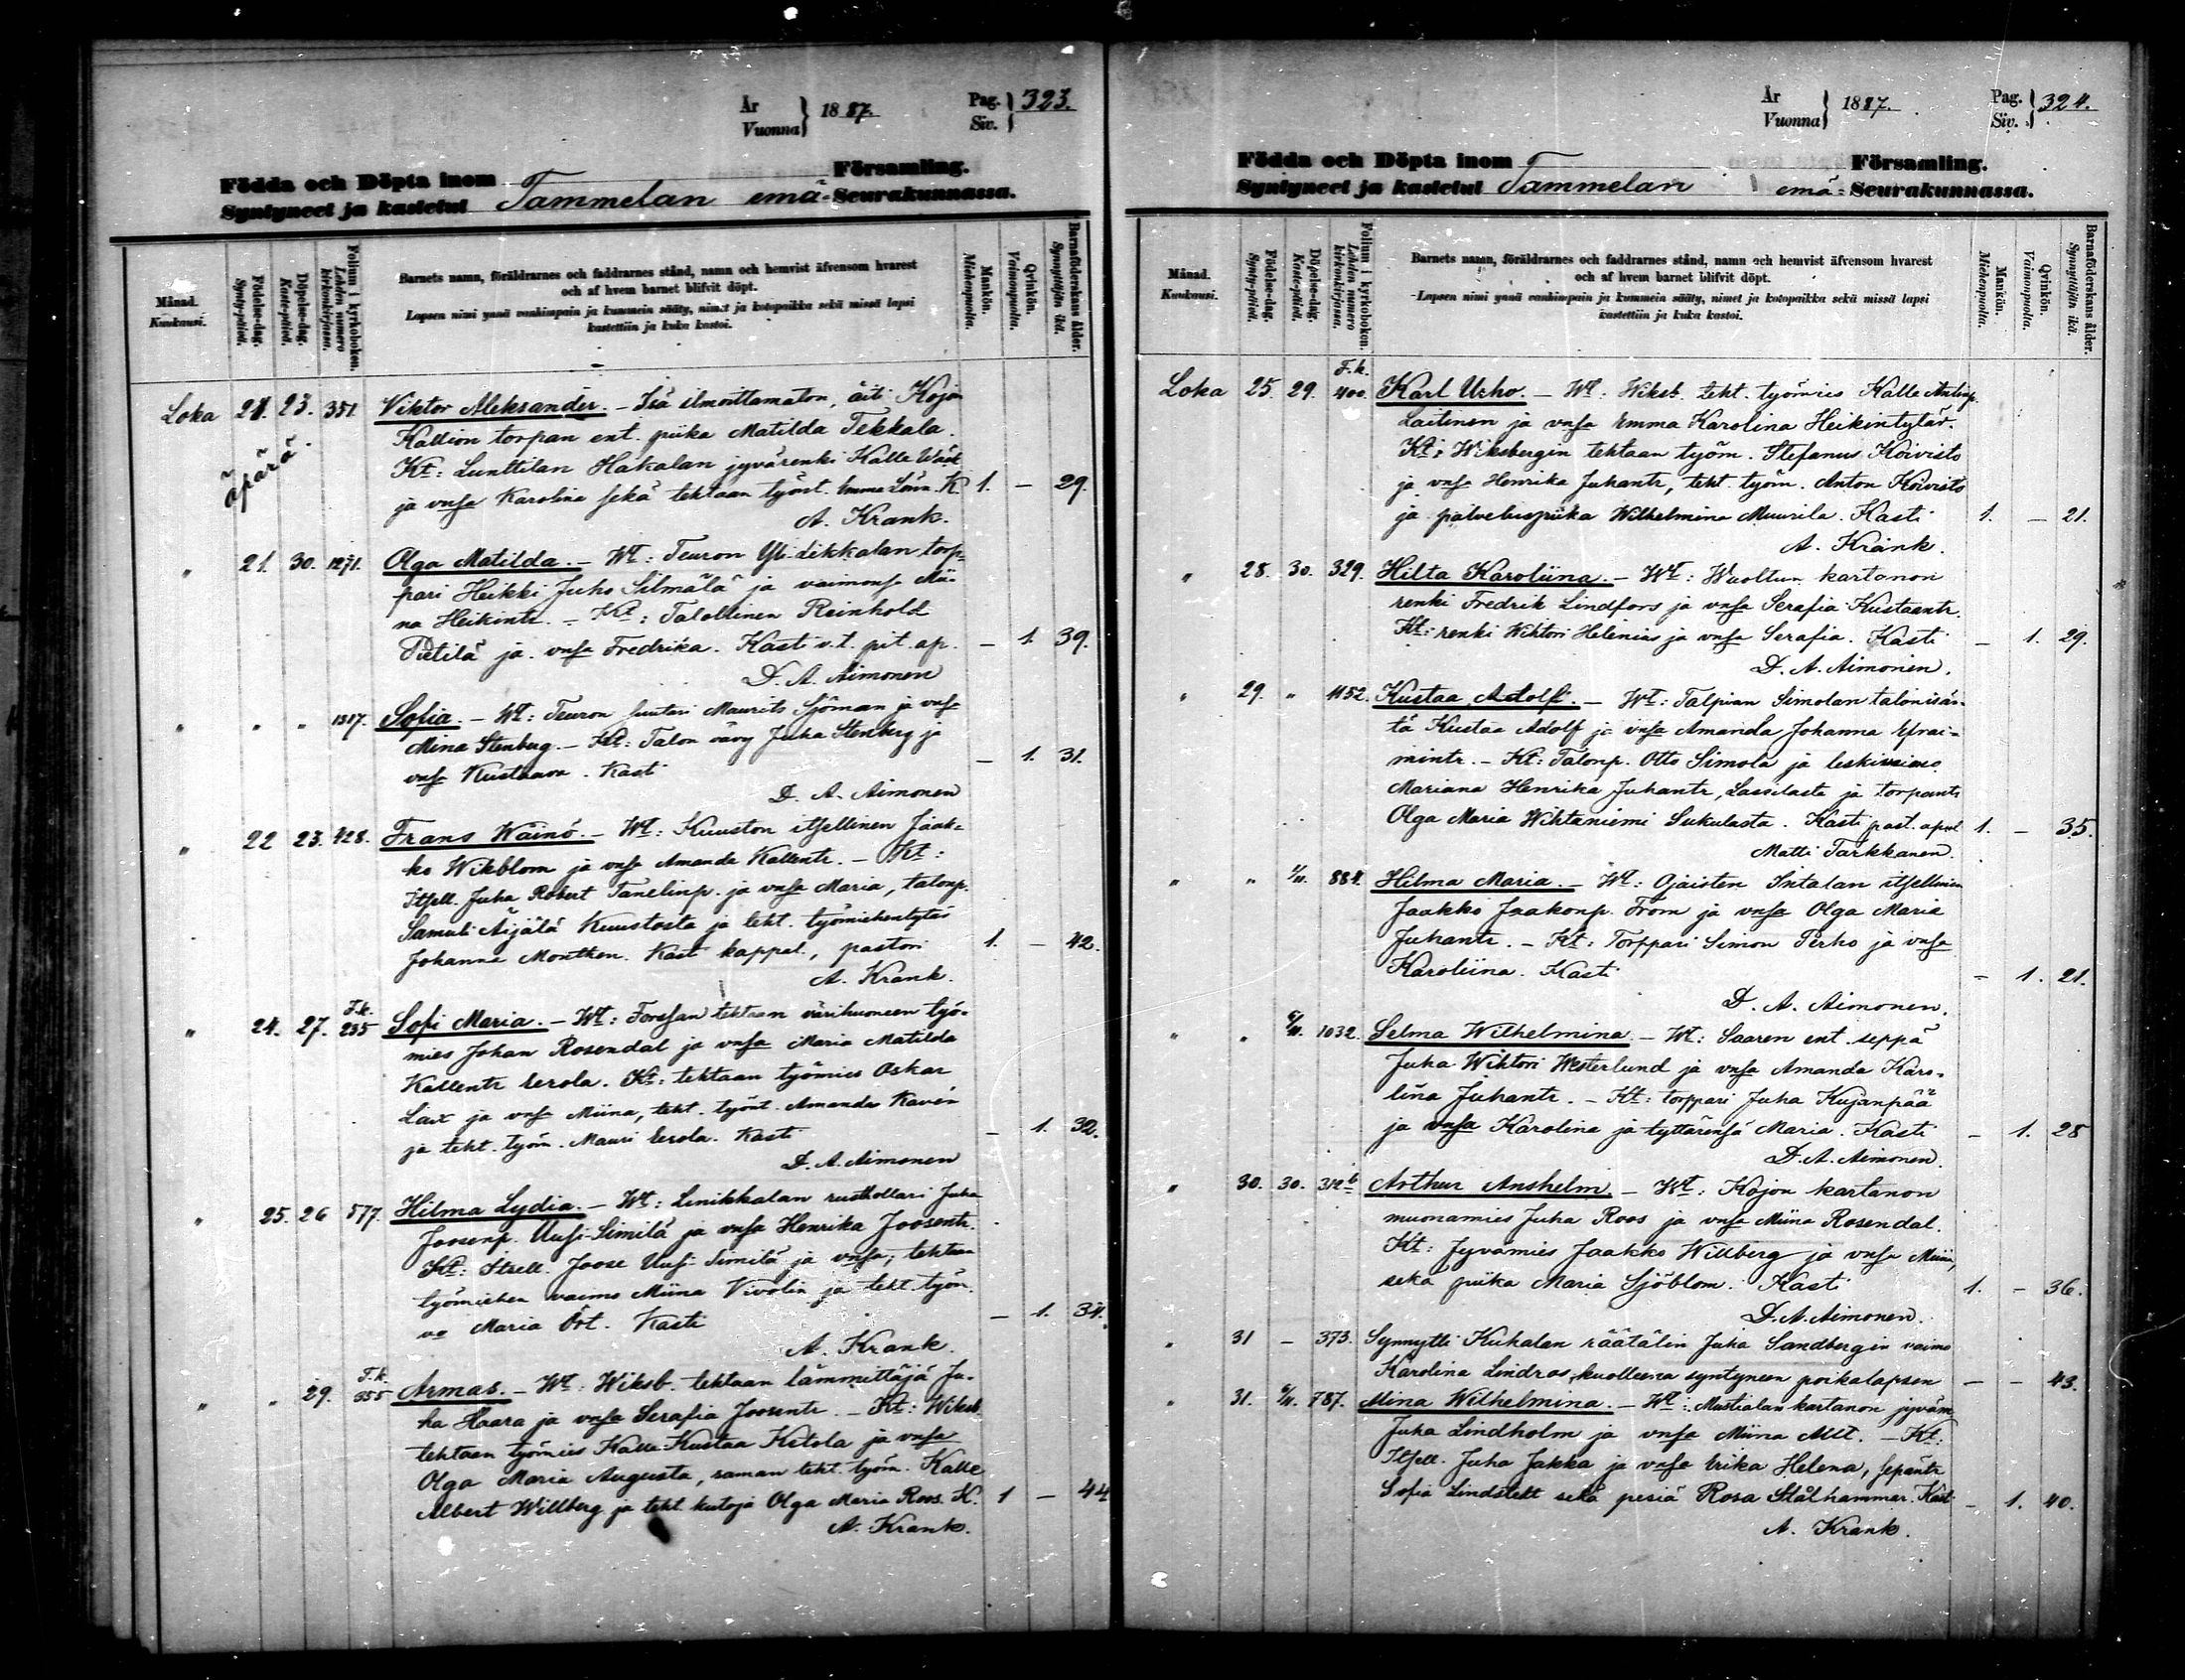 År Vuonna } 1887. Pag. Siv. } 323.
Födda och Döpta inom Församling.
Syntyneet ja kastetut Tammelan emä-Seurakunnassa.
Månad. Kuukausi.
Födelse-dag. Synty-päivä.
Döpelse-dag. Kaste-päivä.
Folium i kyrkoboken. Lehden numero kirkonkirjassa.
Barnets namn, föräldrarnes och faddrarnes stånd, namn och hemvist äfvensom hvarest
och af hvem barnet blifvit döpt.
Lapsen nimi ynnä vanhimpain ja kummein sääty, nimet ja kotopaikka sekä missä lapsi
kastettiin ja kuka kastoi.
Mankön. Miehenpuolta.
Qvinkön. Vaimonpuolta.
Barnaföderskans ålder. Synnyttäjän ikä.
Loka 21. 23. 351. Viktor Aleksander. - Isä ilmoittamaton, äiti Kojon
äpärä. Kallion torpan ent. piika Matilda Tekkala.
Kt: Lunttilan Hakalan jyvärenki Kalle
ja vnsa Karolina sekä tehtaan työnt. Emma K. 1. - 29.
A. Krank.
" 21. 30. 1271. Olga Matilda. - Wt: Teuron Yli-Likkalan torp-
pari Heikki Juho Silmälä ja vaimonsa Mii-
na Heikintr. - Kt: Talollinen Reinhold
Pietilä ja vnsa Fredrika. Kasti v.t. pit. ap. - 1. 39.
D. A. Aimonen
" " " 1317. Sofia. - Wt: Teuron suutari Maurits Sjöman ja vnsa
Mina Stenberg. - Kt: Talon vävy Juha Stenberg ja
vnsa Kustaava. Kasti - 1. 31.
D. A. Aimonen
" 22 23. 428. Frans Wäinö. - Wt: Kuuston itsellinen Jaak-
ko Wikblom ja vnsa Amanda Kallentr. - Kt:
Itsell. Juha Robert Tanelinp. ja vnsa Maria, talonp.
Samuli Äijälä Kuustosta ja teht. työmiehentytär
Johanna Monthen. Kast. kappal., pastori 1. - 42.
A. Krank.
" 24. 27. F.k. 235 Sofi Maria. - Wt: Forssan tehtaan värihuoneen työ-
mies Johan Rosendal ja vnsa Maria Matilda
Kallentr Eerola. Kt: tehtaan työmies Oskar
Lax ja vnsa Miina, teht. työnt. Amanda Kavén
ja teht. työm. Mauri Eerola. Kasti - 1. 32.
D. A. Aimonen
" 25. 26 577. Hilma Lydia. - Wt: Linikkalan rusthollari Juha
Joosenp. Uusi-Similä ja vnsa Henrika Joosentr.
Kt: Itsell. Joose Uusi-Similä ja vnsa; tehtaan
työmiehen vaimo Miina Vivolin ja teht. työn.
vo Maria Ört. Kasti - 1. 34.
A. Krank.
" " 29. F.k. 355 Armas. - Wt: Wiksb. tehtaan lämmittäjä Ju-
ha Haara ja vnsa Serafia Joosentr. - Kt: Wiksb.
tehtaan työmies Kalle Kustaa Ketola ja vnsa
Olga Maria Augusta, saman teht. työm. Kalle
Albert Willberg ja teht. kutoja Olga Maria Roos. K. 1 - 44
A. Krank.
År Vuonna } 1887. Pag. Siv. } 324.
Födda och Döpta inom Församling.
Syntyneet ja kastetut Tammelan emä-Seurakunnassa.
Månad. Kuukausi.
Födelse-dag. Synty-päivä.
Döpelse-dag. Kaste-päivä.
Folium i kyrkoboken. Lehden numero kirkonkirjassa.
Barnets namn, föräldrarnes och faddrarnes stånd, namn och hemvist äfvensom hvarest
och af hvem barnet blifvit döpt.
Lapsen nimi ynnä vanhimpain ja kummein sääty, nimet ja kotopaikka sekä missä lapsi
kastettiin ja kuka kastoi.
Mankön. Miehenpuolta.
Qvinkön. Vaimonpuolta.
Barnaföderskans ålder. Synnyttäjän ikä.
Loka 25. 29. F.k. 400. Karl Urho. - Wt: Wiksb. teht. työmies Kalle Antinp.
Laitinen ja vnsa Emma Karolina Heikintytär.
Kt: Wiksbergin tehtaan työm. Stefanus Koivisto
ja vnsa Henrika Juhantr, teht. työm. Anton Koivisto
ja palveluspiika Wilhelmina Muurila. Kasti 1. - 21.
A. Krank.
" 28. 30. 329. Hilta Karoliina. - Wt: Wuoltun kartanon
renki Fredrik Lindfors ja vnsa Serafia Kustaantr.
Kt: renki Wihtori Helenius ja vnsa Serafia. Kasti - 1. 29.
D. A. Aimonen.
" 29. " 1152. Kustaa Adolf. - Wt: Talpian Simolan talonisän-
tä Kustaa Adolf ja vnsa Amanda Johanna Efrai-
mintr. - Kt: Talonp. Otto Simola ja leskivaimo
Mariana Henrika Juhantr, Lassilasta ja torpantr
Olga Maria Wihtaniemi Sukulasta. Kasti past. apul 1. - 35.
Matti Tarkkanen.
" " 1/11. 884. Hilma Maria. - Wt: Ojaisten Intalan itsellinen
Jaakko Jaakonp. From ja vnsa Olga Maria
Juhantr. - Kt: Torppari Simon Perho ja vnsa
Karoliina. Kasti - 1. 21.
D. A. Aimonen.
" " 6/11. 1032. Selma Wilhelmina. - Wt: Saaren ent. seppä
Juha Wihtori Westerlund ja vnsa Amanda Karo-
liina Juhantr. - Kt: torppari Juha Kujanpää
ja vnsa Karolina ja tyttärensä Maria. Kasti - 1. 28
D. A. Aimonen.
" 30. 30. 312 b Arthur Anshelm. - Wt: Kojon kartanon
muonamies Juha Roos ja vnsa Miina Rosendal.
Kt: Jyvämies Jaakko Willberg ja vnsa Miina,
sekä piika Maria Sjöblom. Kasti 1. - 36.
D. A. Aimonen.
" 31 - 373. Synnytti Kukalan räätälin Juha Sandbergin vaimo
Karolina Lindros kuolleena syntyneen poikalapsen - - 43.
" 31. 6/11. 787. Mina Wilhelmina. - Wt: Mustialan kartanon jyväm
Juha Lindholm ja vnsa Miina Alit. - Kt:
Itsell. Juha Jakka ja vnsa Erika Helena, sepäntr
Sofia Lindstett sekä pesiä Rosa Stålhammar. Kast - 1. 40.
A. Krank.